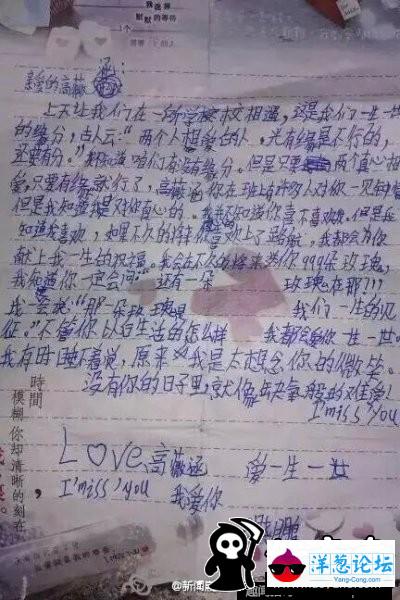 我说种
默默的等待
亲爱的高薇涵:
上天让我们在一所学校相遇,这是我们一生一世
的缘分,古人云:"两个人想爱的人,光有缘是不行的,
还要有份。"我知道咱们有没有缘分。但是只要两个真心相
爱,只要有缘就行了,高薇涵你在班上有许多人对你一见钟情
但是我知道我是对你真心的。我不知道你喜不喜欢我。但是我
知道我喜欢,如果不久的将你喜欢上了路航,我都会为你
献上我一生的祝福。我会在不久的将来送你999朵玫瑰,
我知道你一定会问"还有一朵玫瑰在那???
我会说"那一朵玫瑰是我们一生的见
征。"不管你以后生活的怎么样 我都会爱你一生一世。
我有时睡不着觉,原来是我是太想念你的微笑。
没有你的日子里,就像缺氧般的难受!
I'miss You
時間
模糊,你却清晰的刻在
Love高薇涵 爱一生一世
I'miss'you 我爱你
@新闻
洋葱论坛
Yang-Cong.com